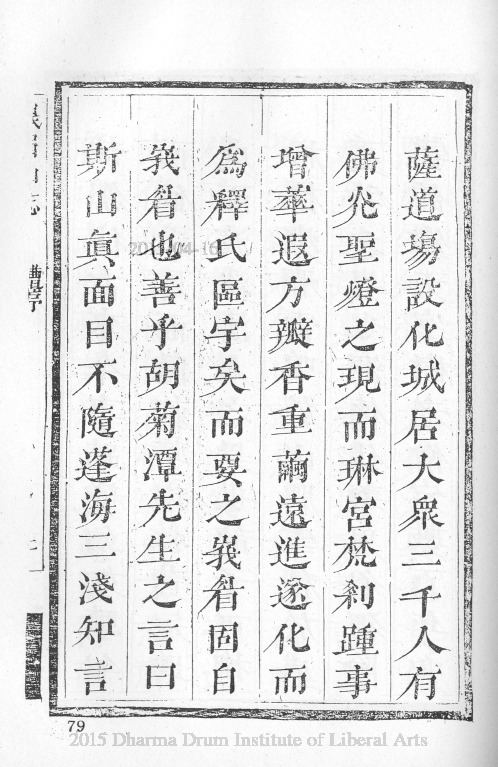 薩道場設化城居大衆三千人有
佛光聖燈之現而琳宮梵刹踵事
增華遐方瓣香重繭遠進遂化而
爲釋氏區宇矣而要之峩眉固自
峩眉也善乎胡菊潭先生之言曰
斯山眞面目不隨蓬海三淺知言
79
2015 Dharma Drum Institute of Liberal Arts